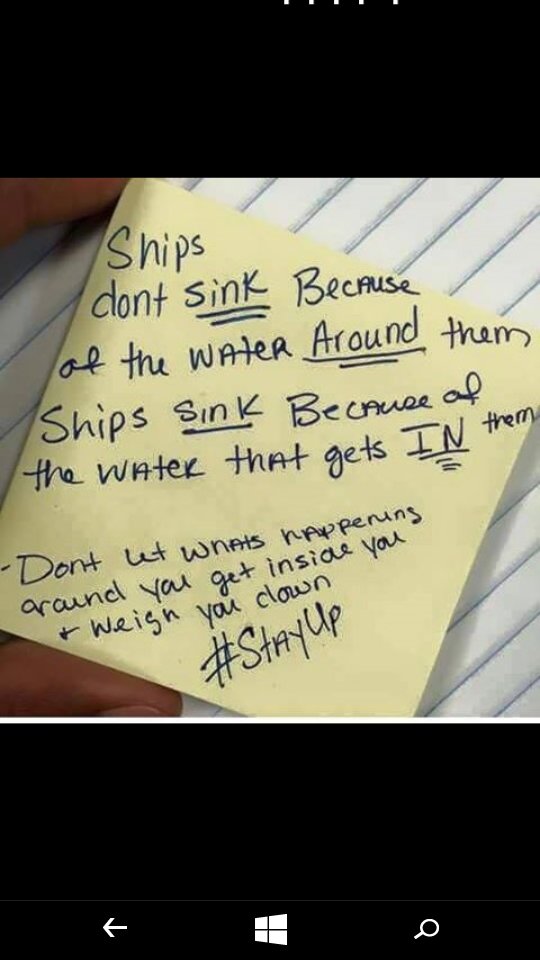 Ships
dont sink Because
of the water Around them
Ships sink Because of
the water that gets IN them
- Dont let whats happening
around you get inside you
+ weigh you down
#StayUp